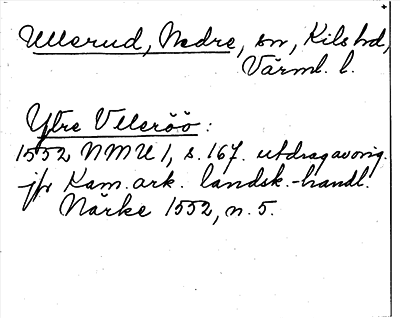 Ullerud, Nedre, sn, Kils hd,
Värml. l.
Ytre Vlleröö:
1552 NMU 1, s. 167. utdrag av orig.
jfr Kam. ark. landsk.-handl.
Närke 1552, n. 5.